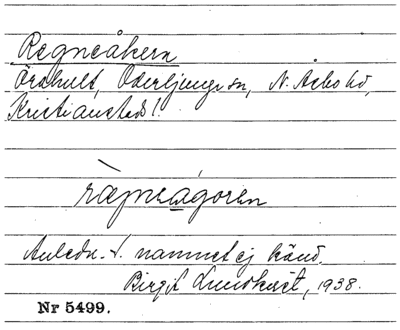 Regneåkern
Örahult, Oderljunga sn, N. Åsbo hd,
Kristianstads l.
ràŋneágoren
Anledn. t. namnet ej känd.
Birgit Lundkvist, 1938.
Nr 5499.